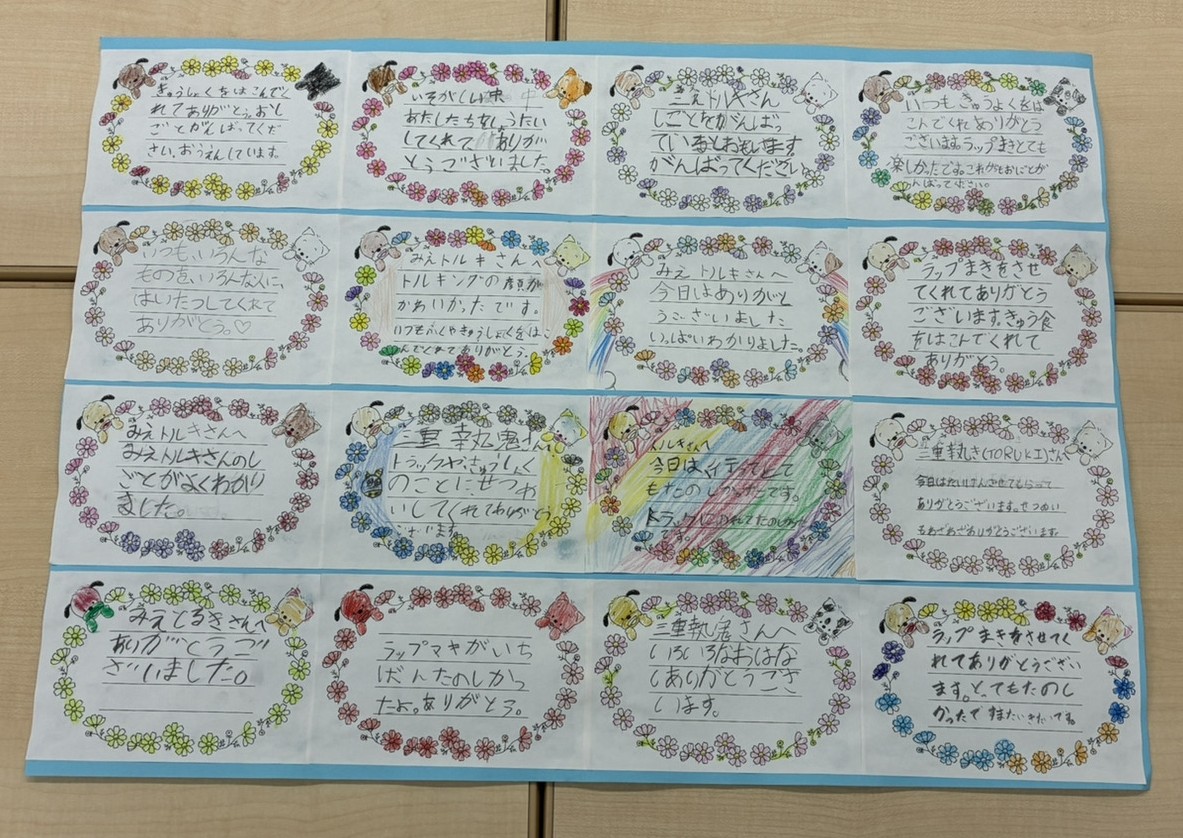 きゅうしょくをはこんでく
れてありがとう。おし
ごとがんばってくだ
さい。おうえんしています。
いそがしい中
わたしたちをしょうたい
してくれてありが
とうございました。
三えトルキさん
しごととをがんばっ
ているとおもいます
がんばってください
いつもきゅうよくをは
こんでくれありがとう
ございます。ラップまきとても
楽しかったです。これからもおしごとが
んばってください。
いつも、いろんな
ものを、いろんな人に、
はいたつしてくれて
ありがとう。♡
みえトルキさんへ
トルキングの顔が
かわいかったです。
いつもふくやきゅうしょくをは
んでくれてありがとう。
みえトルキさんへ
今日はありがと
うございました
いっぱいわかりました。
ラップまきをさせ
てくれてありがとう
ございます。きゅう食
をはこんでくれて
ありがとう。
みえトルキさんへ
みえトルキさんのし
ごとがよくわかり
ました。
三重 幸丸鬼さん
トラックやきゅうしょく
のことにせつめ
いしてくれてありがとう
ございます
トルキさんへ
今日は
もたのしかったです。
トラックにのれてたのしかった
三重幸丸き(TORUKI)さん
今日はたいけんさせてもらって
ありがとうございます。せつめい
もわざわざありがとうございます。
みえとるきさんへ
ありがとうござ
ざいました。
ラップマキがいち
ばんたのしかっ
たよ。ありがとう。
三重執鬼さんへ
いろいろなおはな
しありがとうござ
います。
ラップまきをさせてく
れてありがとうござい
ます。とってもたのし
かったで またいきたいです。